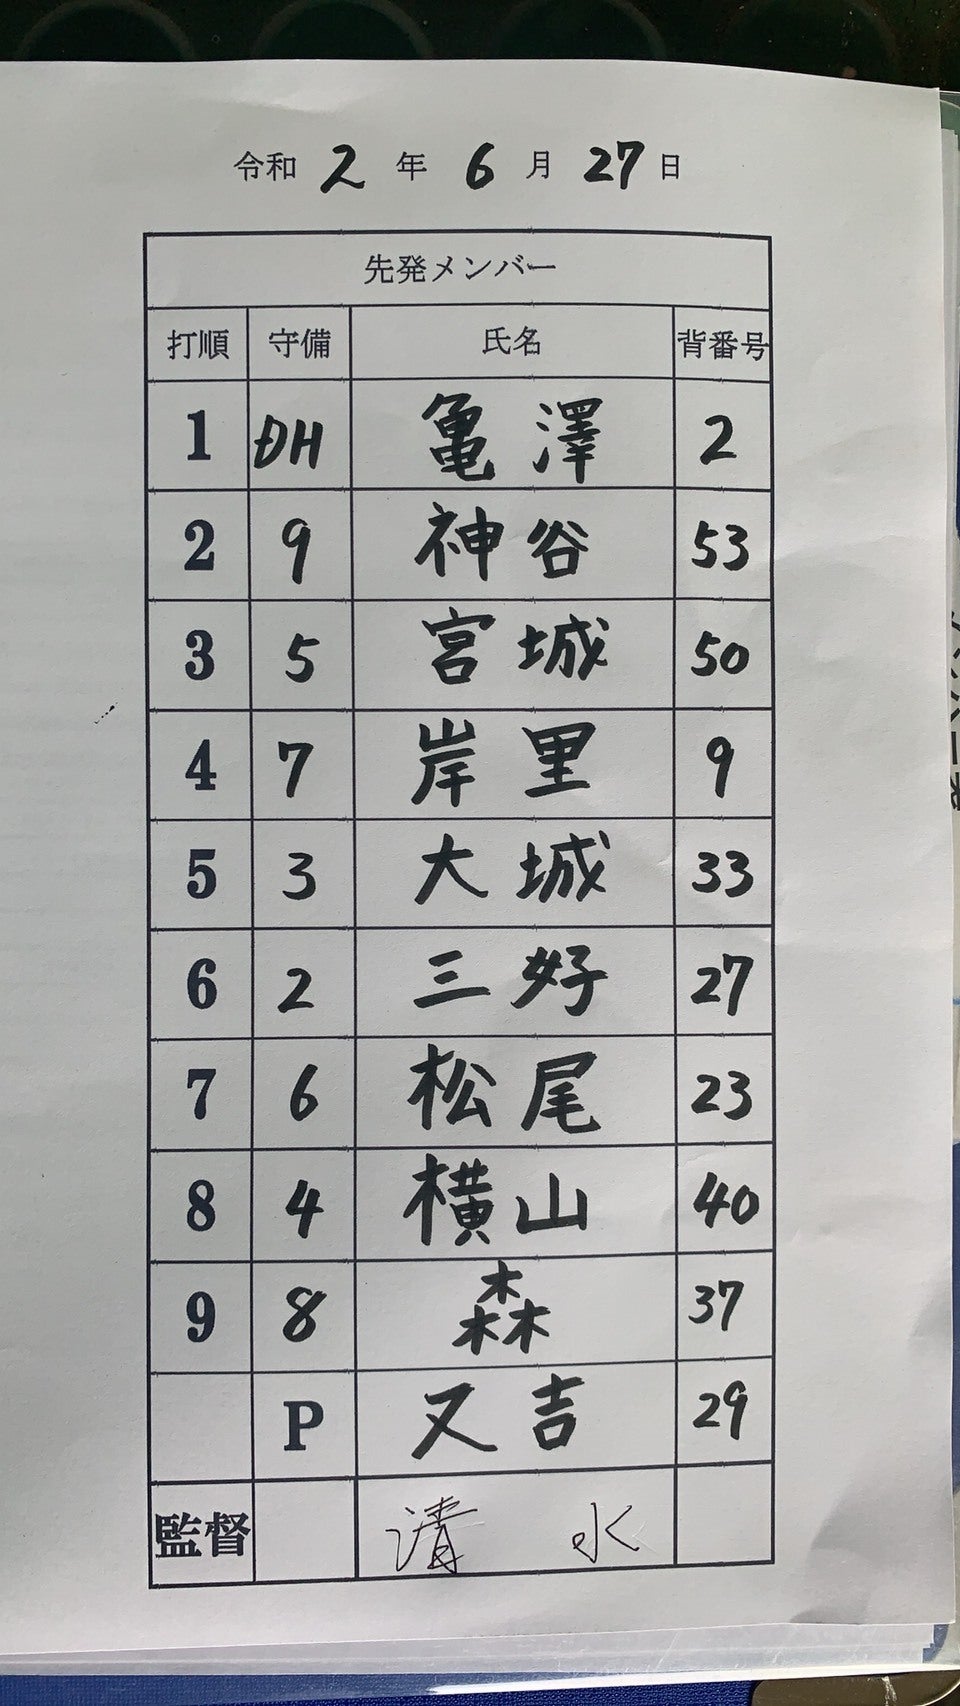 令和 2 年 6 月 27 日
先発メンバー
打順 守備 氏名 背番号
1 DH 亀澤 2
2 9 神谷 53
3 5 宮城 50
4 7 岸里 9
5 3 大城 33
6 2 三好 27
7 6 松尾 23
8 4 横山 40
9 8 森 37
P 又吉 29
監督 清水